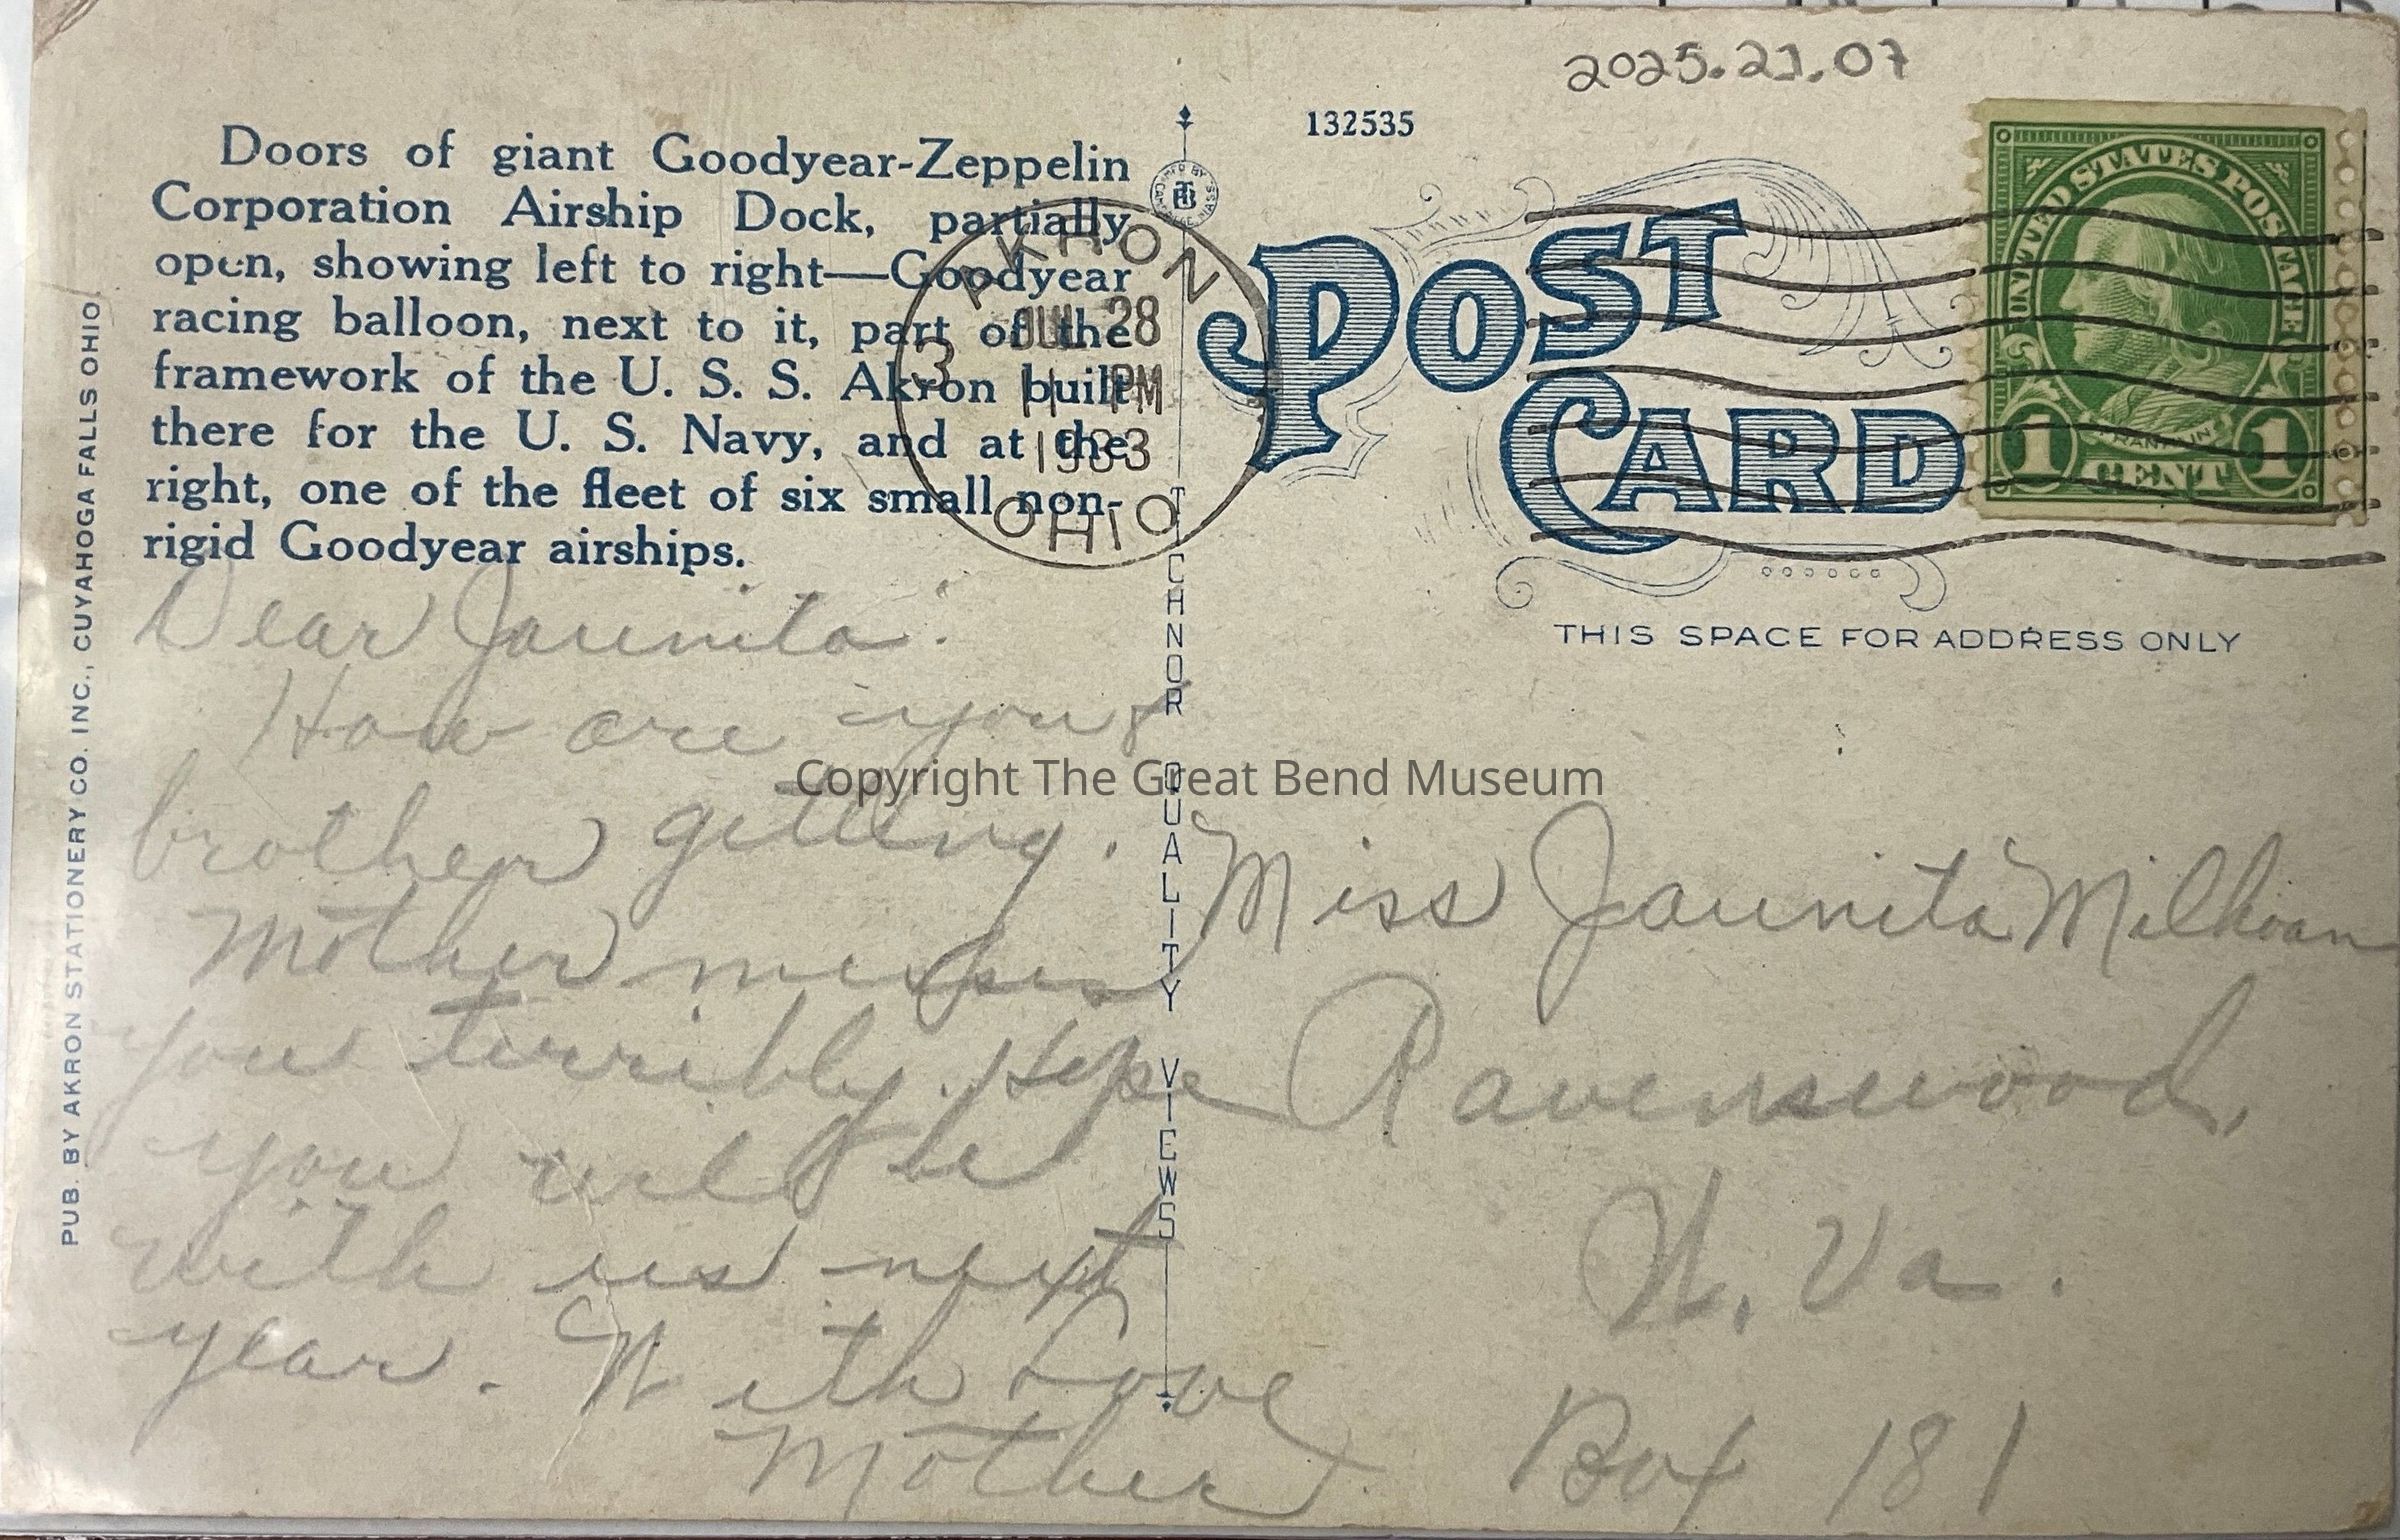 2025.21.07
132535
Doors of giant Goodyear-Zeppelin
Corporation Airship Dock, partially
open, showing left to right—Goodyear
racing balloon, next to it, part of the
framework of the U. S. S. Akron built
there for the U. S. Navy, and at the
right, one of the fleet of six small non-
rigid Goodyear airships.
PUB. BY AKRON STATIONERY CO. INC., CUYAHOGA FALLS OHIO
AKRON
3
JUL 28
11 PM
1933
OHIO
POST
CARD
UNITED STATES POSTAGE
FRANKLIN
1 CENT 1
THIS SPACE FOR ADDRESS ONLY
TICHNOR QUALITY VIEWS
Dear Jaunita:
How are you &
brother getting.
Mother misses
you terribly. Hope
you will be
with us next
year. With Love
Mother
Miss Jaunita Milhoan
Ravenswood,
W. Va.
Box 181
Copyright The Great Bend Museum